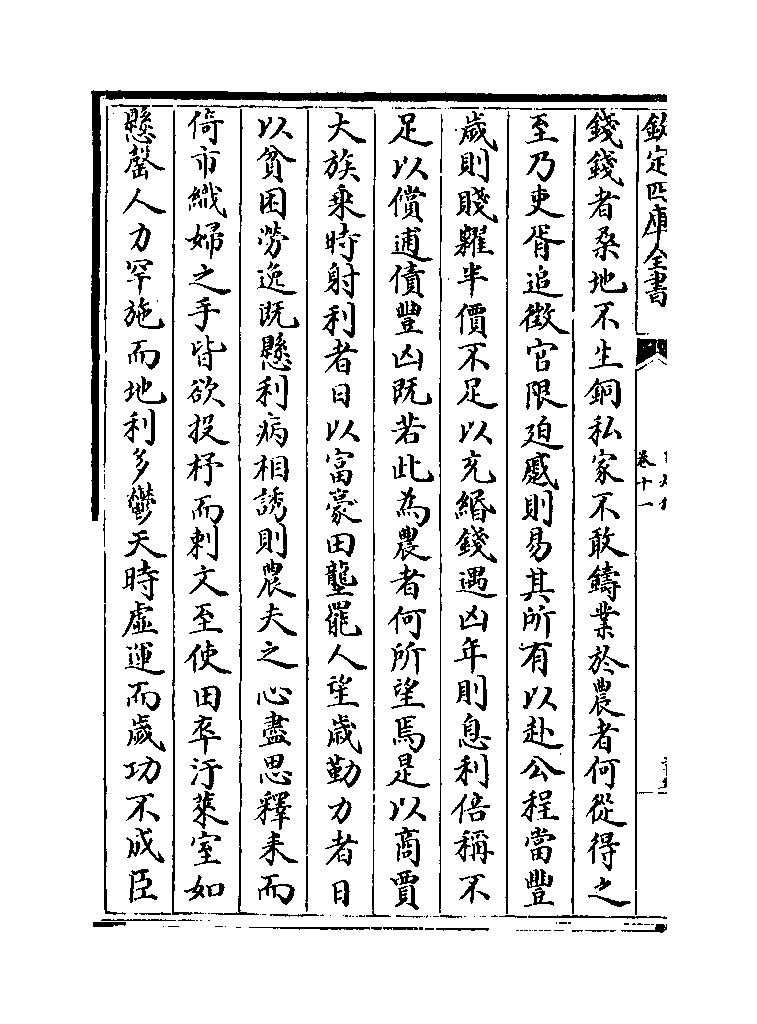 欽定四庫全書
卷十一
錢錢者桑地不生銅私家不敢鑄業於農者何從得之
至乃吏胥追徵官限廹蹙則易其所有以赴公程當豐
歲則賤糶半價不足以充緡錢遇凶年則息利倍稱不
足以償逋債豐凶既若此為農者何所望焉是以商賈
大族乘時射利者日以富豪田壟罷人望歲勤力者日
以貧困勞逸既懸利病相誘則農夫之心盡思釋耒而
倚市織婦之手皆欲投杼而刺文至使田卒汙萊室如
懸罄人力罕施而地利多鬱天時虛運而歲功不成臣